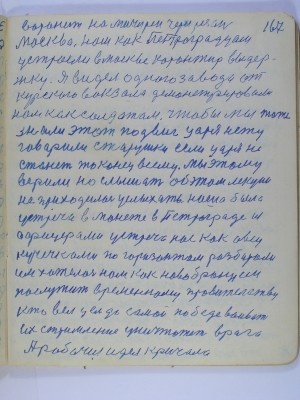 167
Москва, нам как Петроградцам
устроили в Москве карантир выдер-
жку. Я видел одного завода от
курского вокзала демонстрировали
нам как солдатам, чтобы мы тоже
знали этот подвиг царя нету
говорили старушки если царя не
станет то конец всему. Мы этому
верили но слышат об этом лекции
не приходилос услыхать. наша был
встреча в Петрограде и
офицерами встреча нас как овец
кучечками по горизонтам разбирали
им хотелос нам как новобранцеи
послужит временному правителству
кто вел цел до самой победе воиват
их стримление уничтожит врага
А рабочие идея кричала